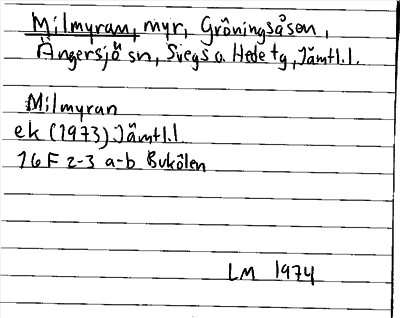 Milmyran, myr, Gröningsåsen,
Ängersjö sn, Svegs o. Hede tg, Jämtl.l.
Milmyran
ek (1973) Jämtl.l
16 F 2-3 a-b Bukölen
LM 1974